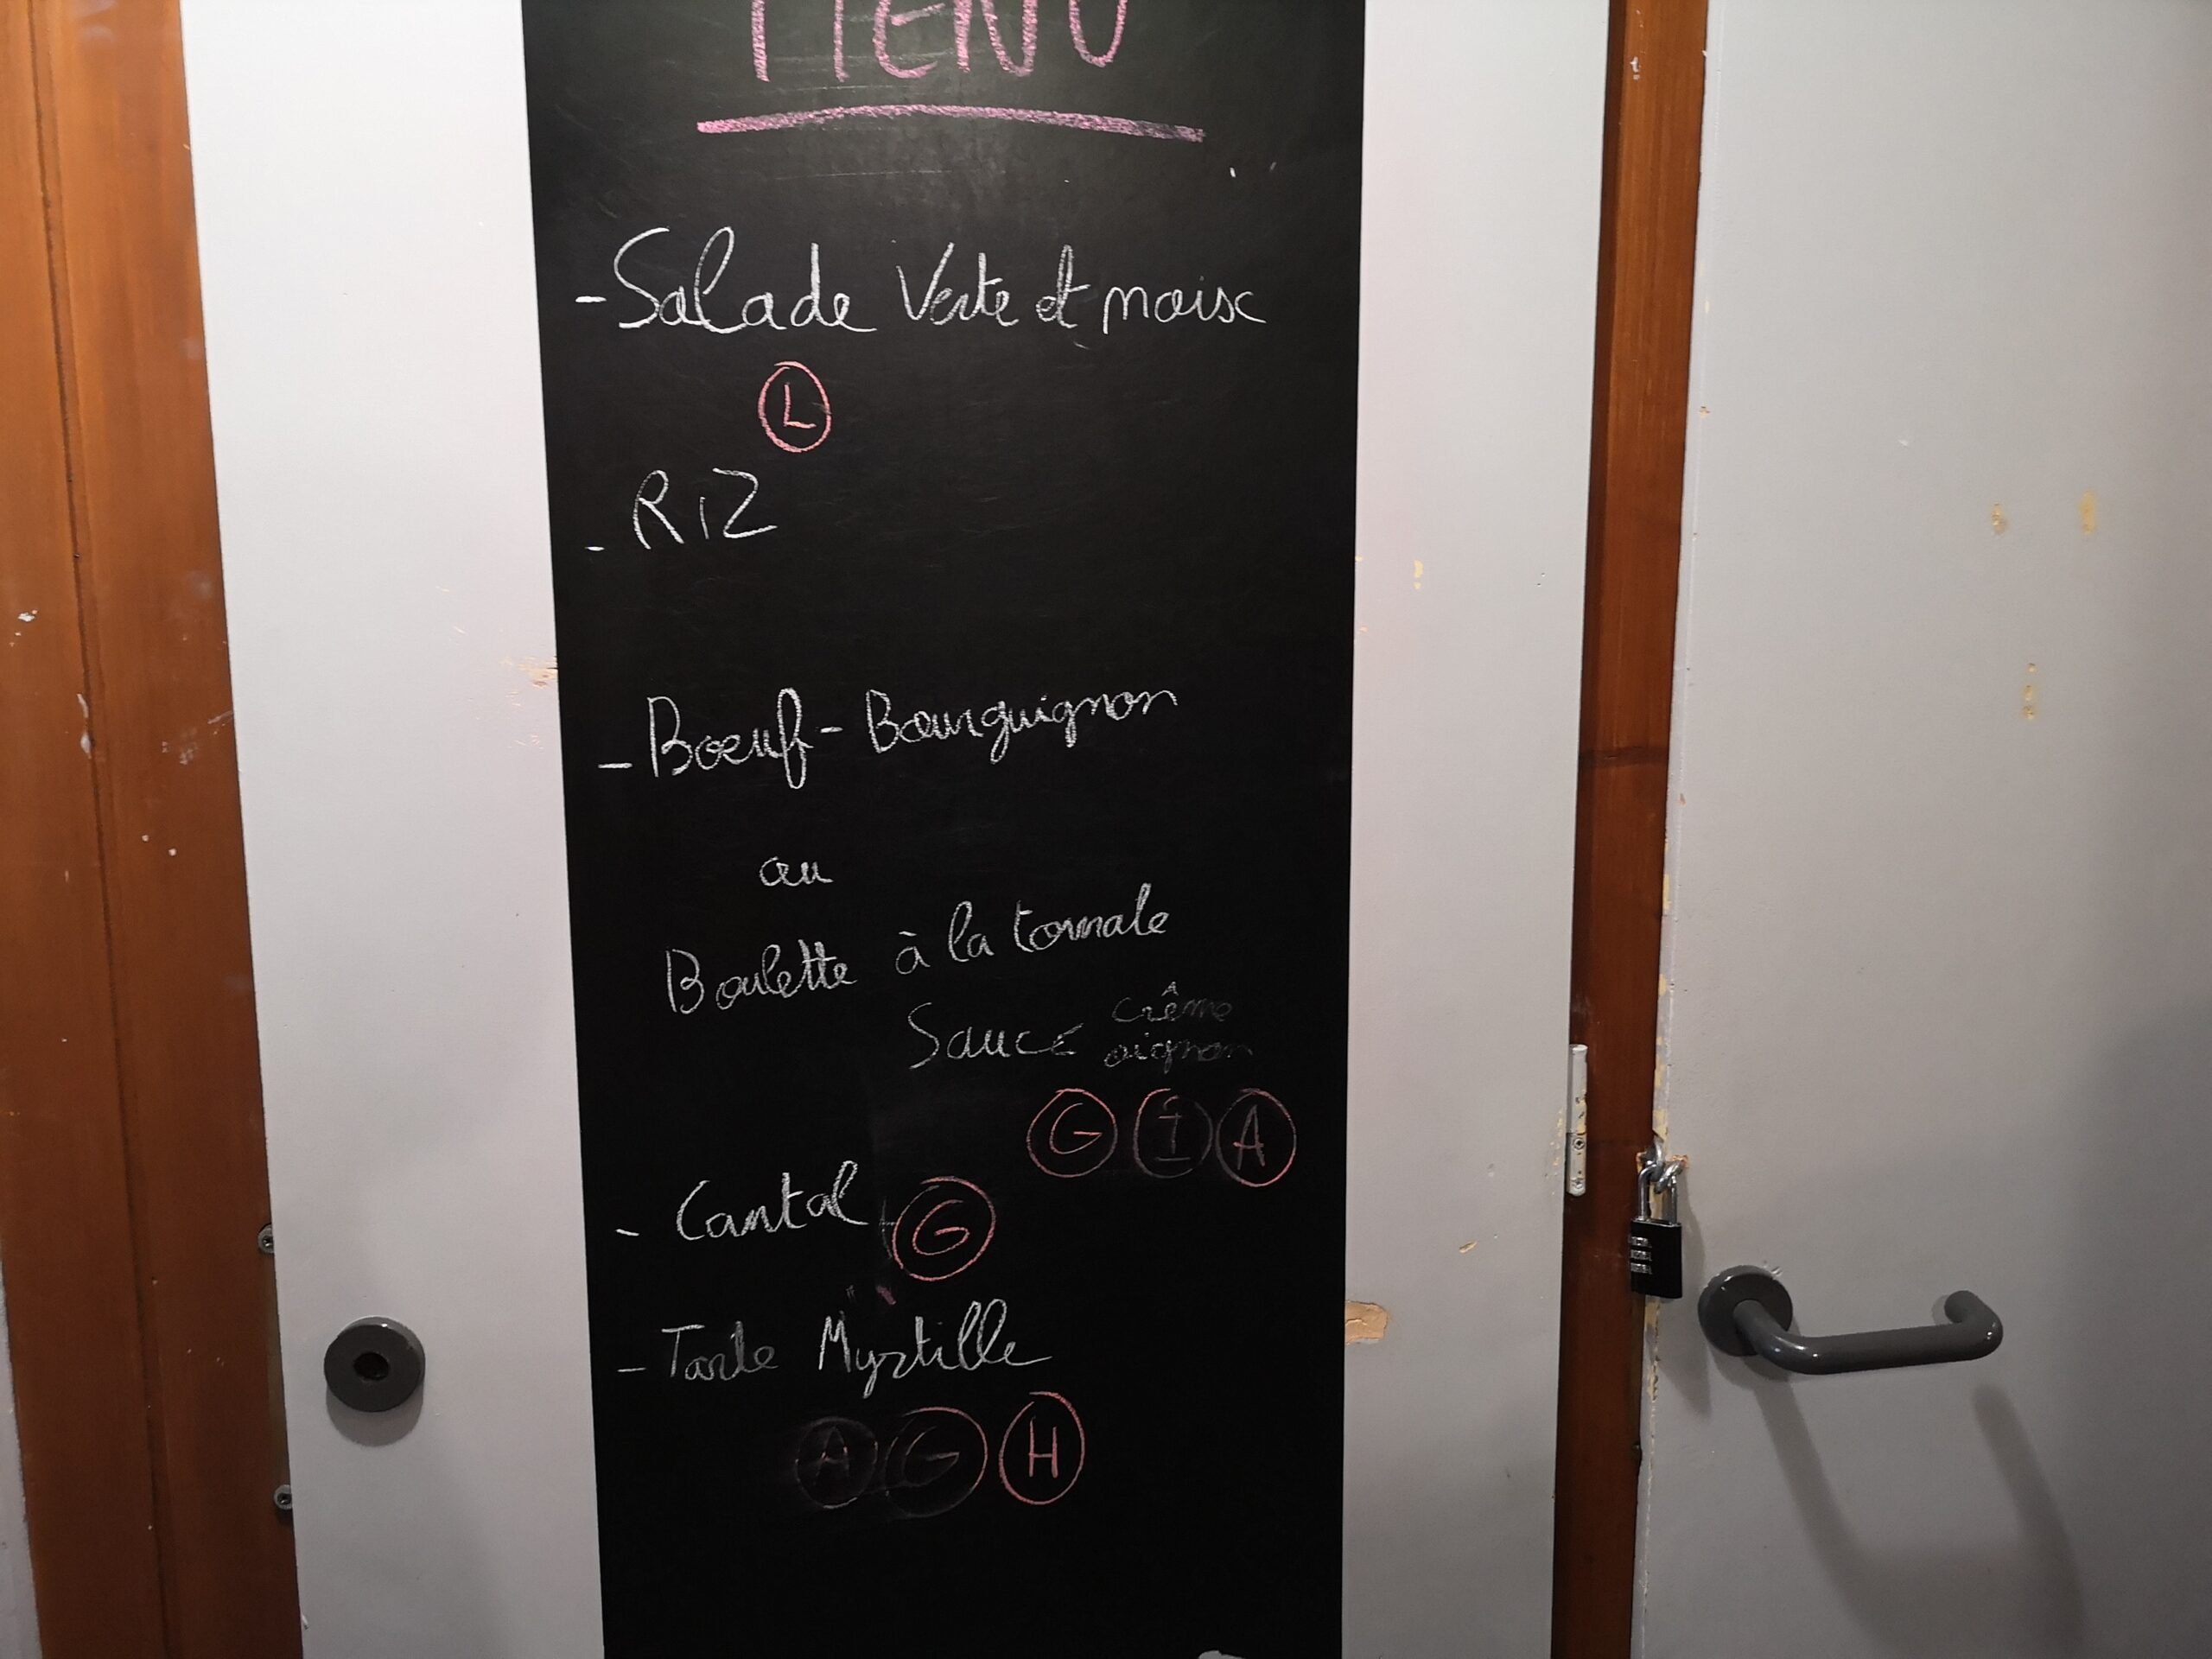 MENU
- Salade Verte et maïsc
L
- Riz
- Boeuf-Bourguignon
ou
Boulette à la tomate
Sauce crème
oignon
G I A
- Cantal G
- Tarte Myrtille
A G H